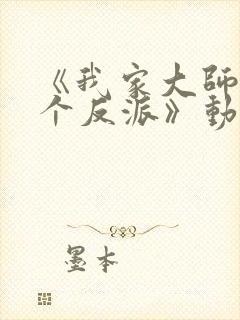 《我家大師
个反派》動
墨本